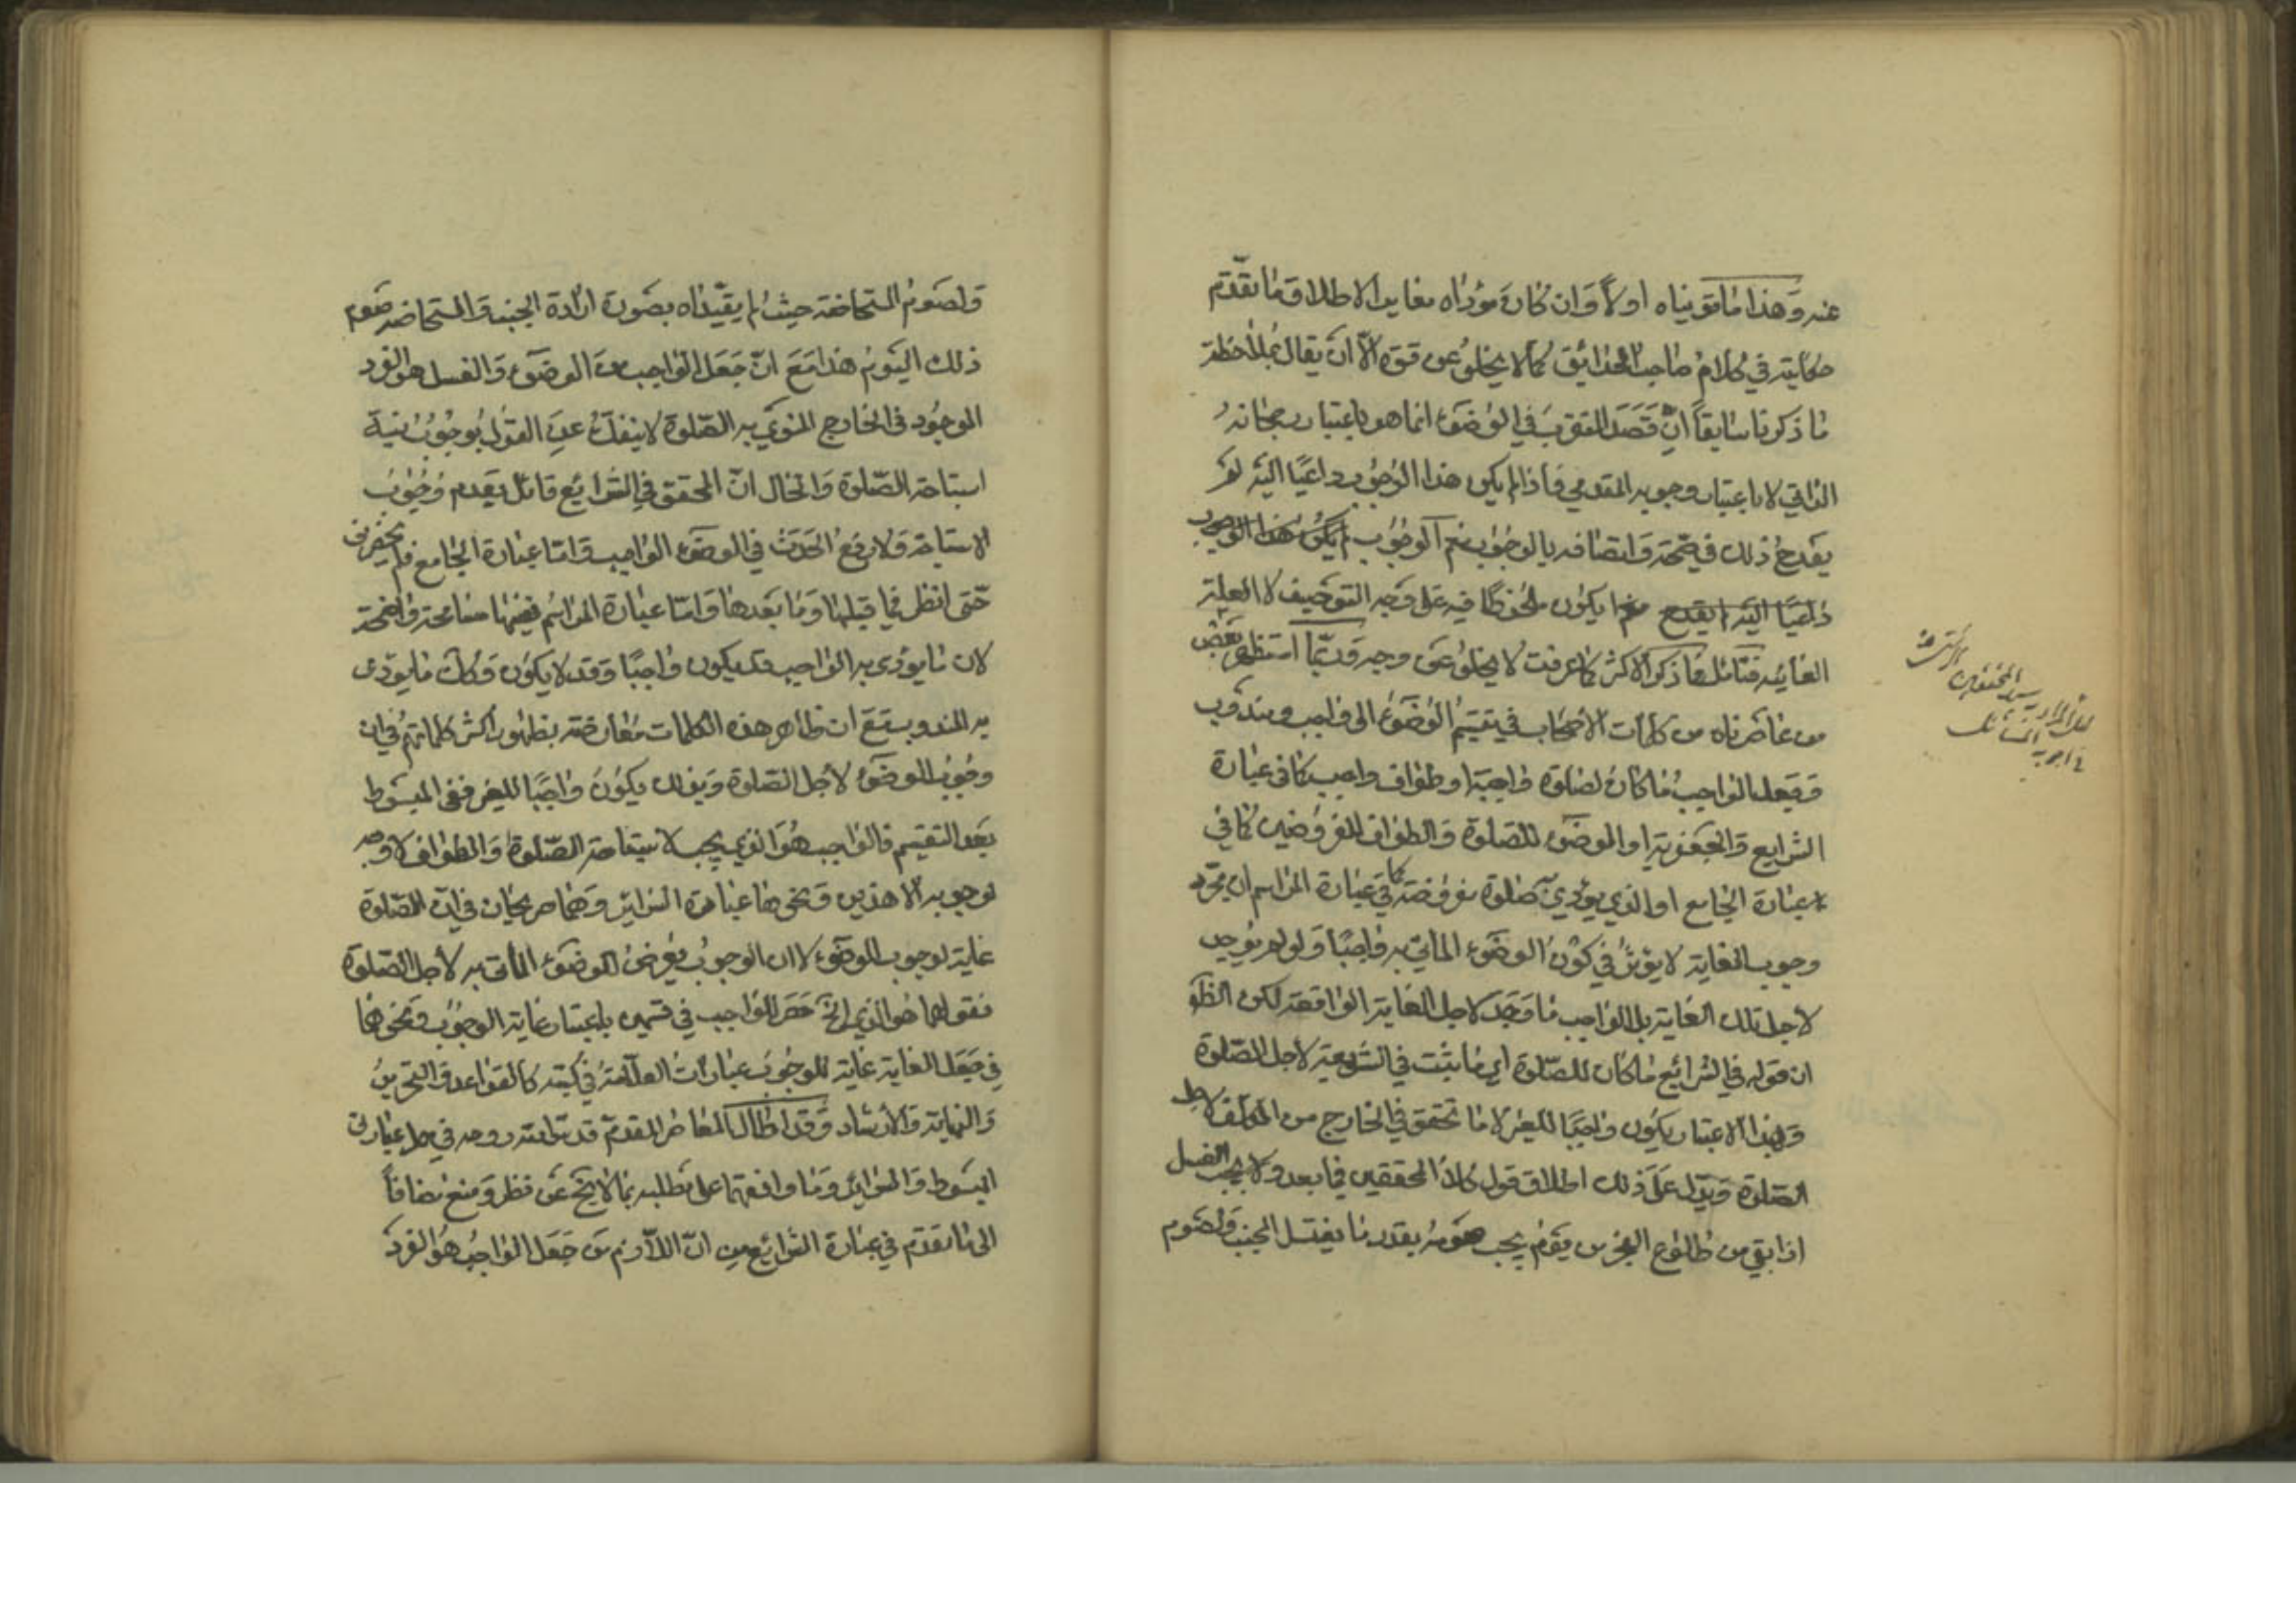 عنه وهذا ما قويناه اولاً وان كان مؤداه مغايرا لاطلاق ما تقدّم
حكايته في كلام صاحب الحدائق كما لا يخلو عن قوة الّا ان يقال بملاحظة
ما ذكرنا سابقاً انّ قصد التقرب في الوضوء انما هو باعتبار رجحانه
الذاتي لا باعتبار وجوبه المقدمي فاذا لم يكن هذا الوجوب داعيًا اليه لم
يقدح ذلك في صحته واتصافه بالوجوب نعم الوجوب لم يكن هذا الوجوب
داعيًا اليه لم يقدح ايكون ملحوظًا فيه على وجه التوصيف لا العلية
الغائية فتامّل فما ذكره الاكثر كما عرفت لا يخلو عن وجه وربّما استظهر بعض
من عاصرناه من كلمات الاصحاب في تقسيم الوضوء الى واجب ومندوب
وجعل الواجب ما كان لصلوة واجبة او طواف واجب كما في عبارة
الشرايع والجعفرية او الوضوء للصلوة والطواف المفروضين كما في
عبارة الجامع او الذي يؤدي به صلوة مفروضة كما في عبارة المراسم ان مجرّد
وجوب الغاية لا يؤثر في كون الوضوء الماتي به واجبًا ولو لم يوجد
لاجل تلك الغاية بل الواجب ما وجد لاجل الغاية الواقعة لكن الظ
ان قوله في الشرائع ما كان للصّلوة اي ما يثبت في الشريعة لاجل الصّلوة
وبهذا الاعتبار يكون واجبًا للغير لا ما تحقق في الخارج من المكلف لاجل
الصّلوة ويدل على ذلك اطلاق قول كلا المحققين فيما بعد ولا يجب الغسل
اذا بقي من طلوع الفجر من يوم يجب صومه بقدر ما يغتسل الجنب ولصوم
للمرادر سيد المحققين
في اجوبة المسائل
ولصوم المستحاضة حيث لم يقيّداه بصورة ارادة الجنب والمستحاضه صوم
ذلك اليوم هذا مع انّ جعل الواجب من الوضوء والغسل هو الفرد
الموجود في الخارج المنوي به الصّلوة لا ينفك عن القول بوجوب نية
استباحة الصّلوة والحال انّ المحقق في الشرائع قائل بعدم وجوب
الاستباحة ولا رفع الحدث في الوضوء الواجب وامّا عبارة الجامع فلم تحضرني
حتى انظر فيما قبلها وما بعدها وامّا عبارة المراسم ففيها مسامحة واضحة
لان ما يؤدى به الواجب قد يكون واجبًا وقد لا يكون وكك ما يؤدى
به المندوب مع ان ظاهر هذه الكلمات معارضة بظهور اكثر كلماتهم في ان
وجوب الوضوء لاجل الصّلوة وبذلك يكون واجبًا للغير ففي المبسوط
بعد التقسيم فالواجب هو الذي يجب لاستباحة الصّلوة والطواف لا وجه
لوجوبه الّا هذين ونحوها عبارة السرائر وهما صريحان في انّ الصّلوة
غاية لوجوب الوضوء لا ان الوجوب يعرض الوضوء الماتي به لاجل الصّلوة
فقولهما هو الذي الخ حصر للواجب في قسمين باعتبار غاية الوجوب ونحوهما
في جعل الغاية غاية للوجوب عبارات العلّامة في كتبه كالقواعد والتحرير
والنهاية والارشاد وقد اطال المعاصر المقدم قدس الله روحه في حمل عبارتي
المبسوط والسرائر وما وافقهما على مطلبه بما لا يخ عن نظر ومنع مضافاً
الى ما تقدّم في عبارة الشرائع من انّ اللازم من جعل الواجب هو الفرد